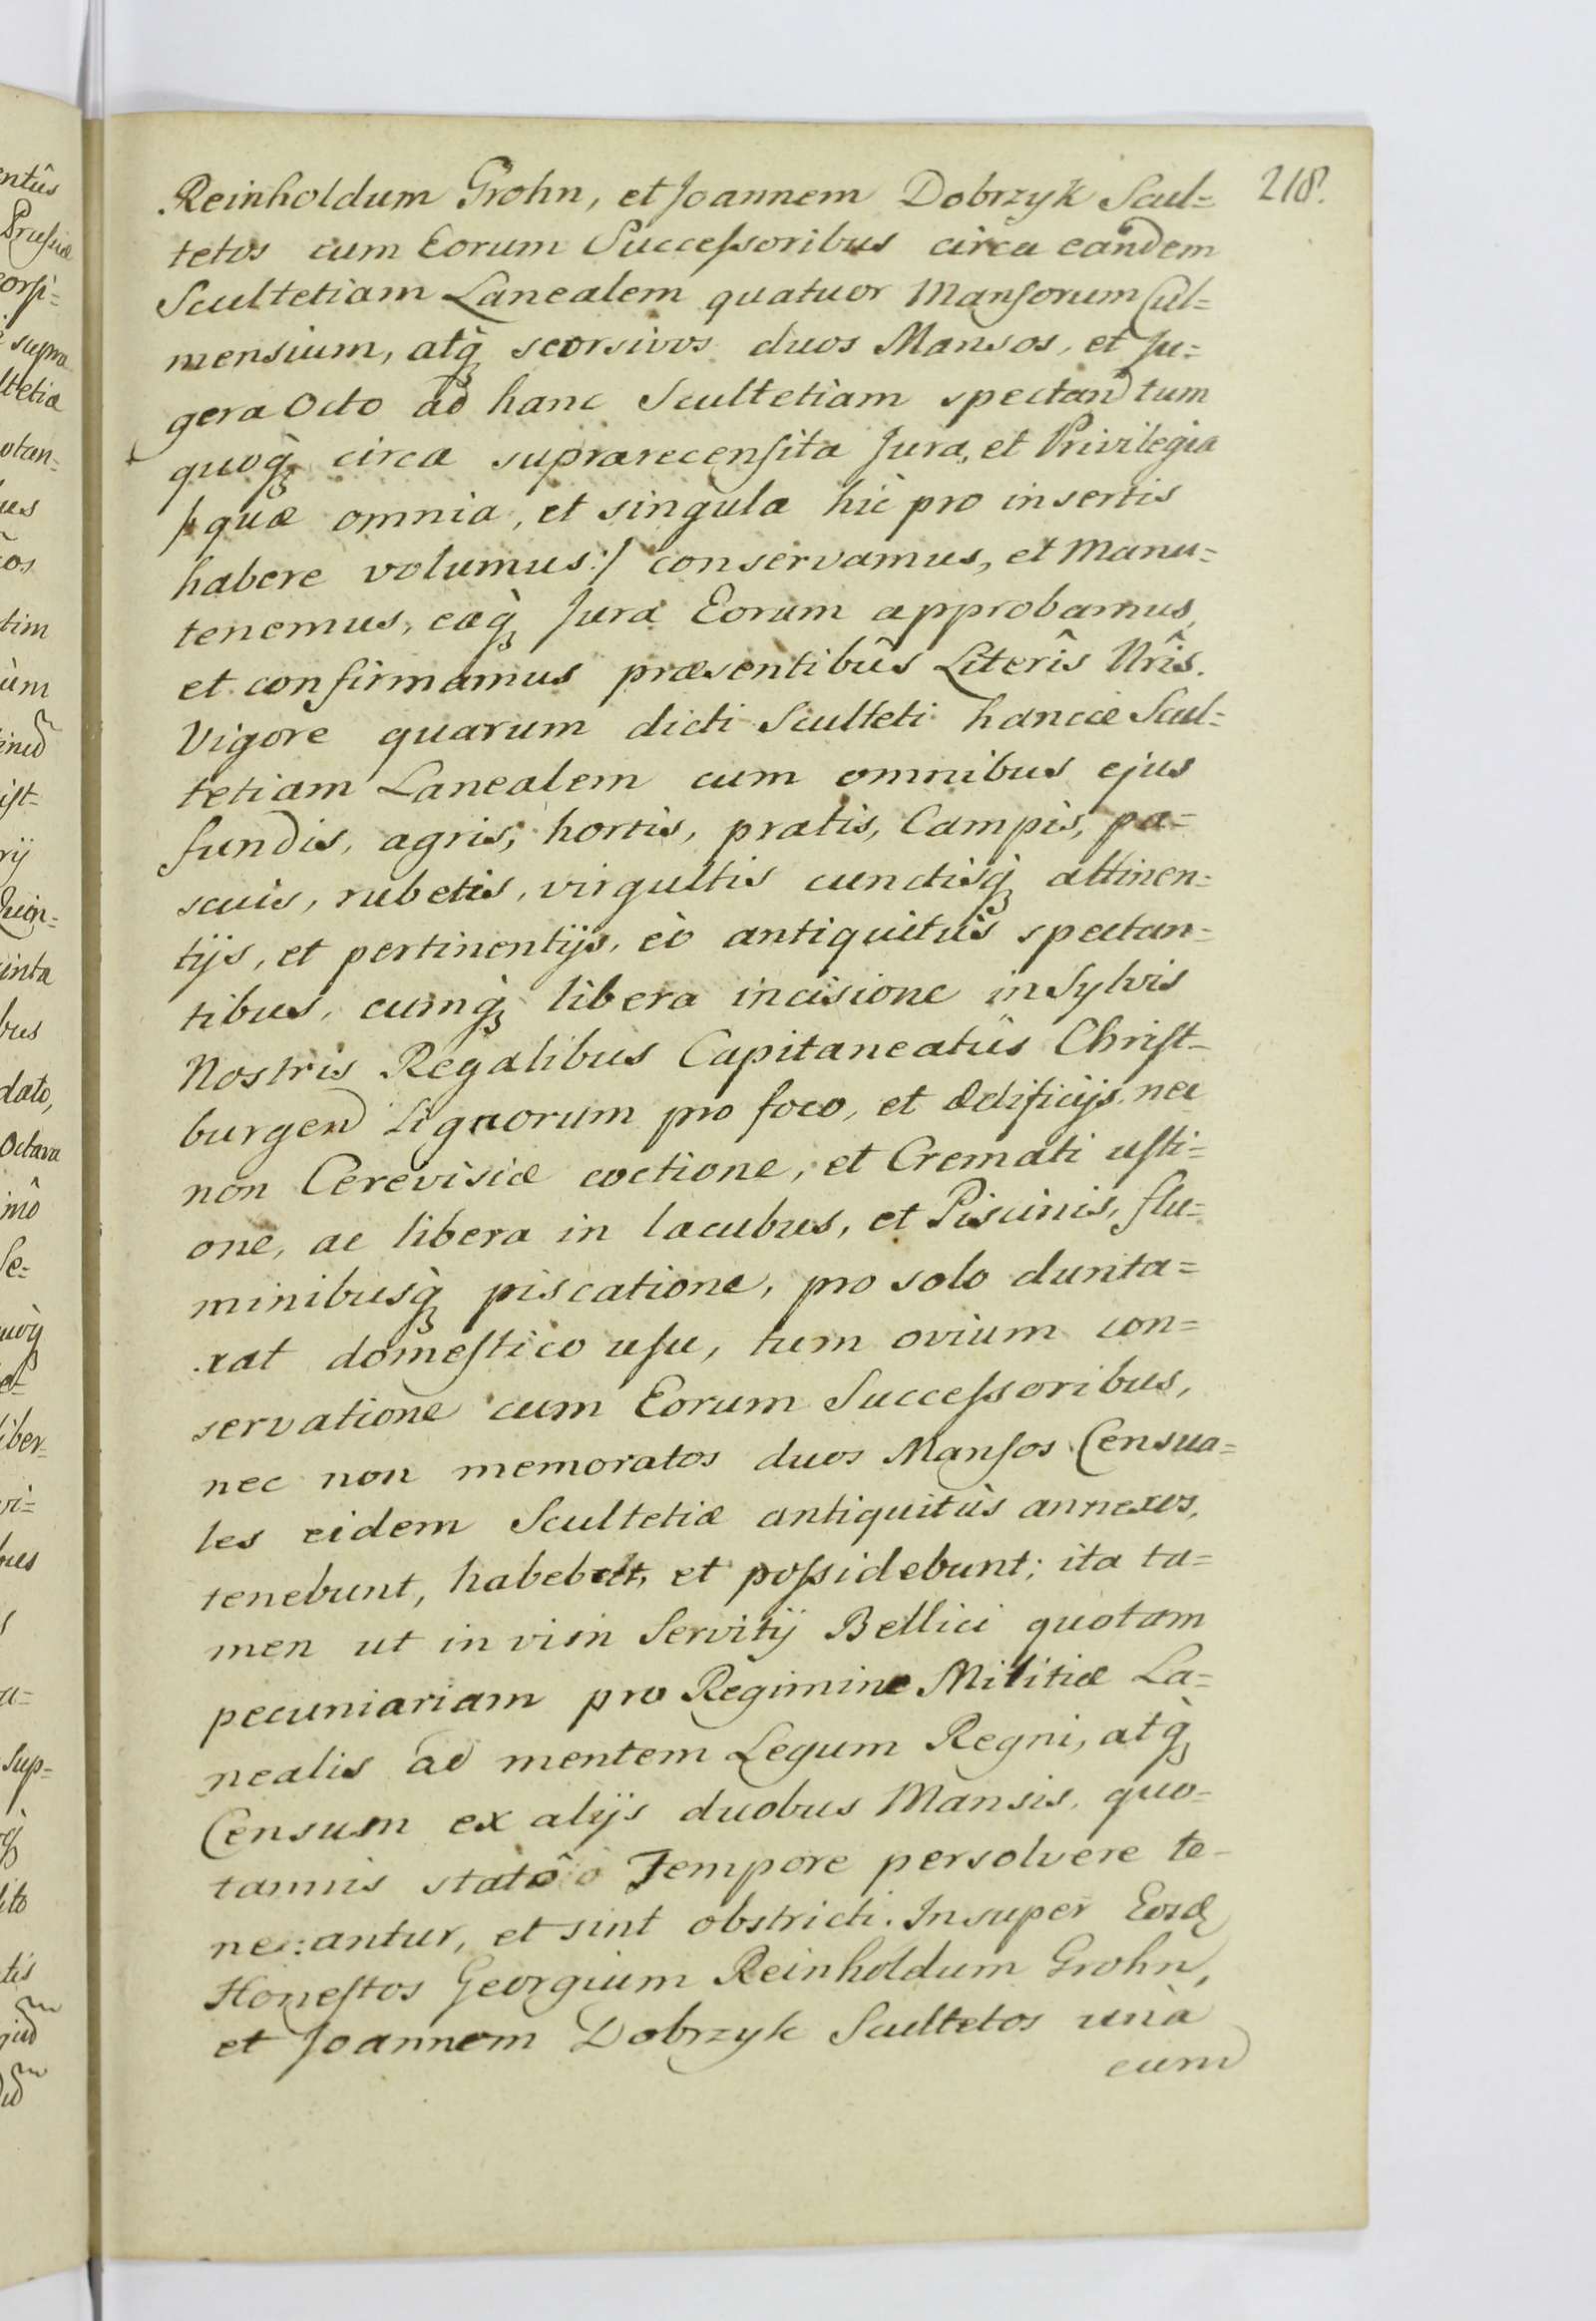 218.
Reinholdum Grohn, et Joannem Dobrzyk Scul=
tetos cum Eorum Successoribus circa eandem
Scultetiam Lanealem quatuor Mansorum Cul=
mensium, atq̀ seorsivos duos Mansos, et Ju=
gera Octo ad hanc Scultetiam spectan tum
quoq̀ circa suprarecensita Jura, et Privilegia
/: quæ omnia, et singula hic pro insertis
habere volumus :/ conservamus, et Manu=
tenemus, eaq̀ Jura Eorum approbamus,
et confirmamus præsentibûs Literîs Nrîs.
Vigore quarum dicti Sculteti hancce Scul=
tetiam Lanealem cum omnibus ejus
fundis, agris, hortis, pratis, Campis, pa=
scuis, rubetis, virgultis cunctisq̀ attinen=
tijs, et pertinentijs, eò antiquitùs spectan=
tibus, cumq̀ libera incisione in Sylvis
Nostris Regalibus Capitaneatûs Christ=
burgen Lignorum pro foco, et ædificijs, nec
non Cerevisiæ coctione, et Cremati usti=
one, ac libera in lacubus, et Piscinis, flu=
minibusq̀ piscatione, pro solo dunta=
xat domestico usu, tum ovium con=
servatione cum Eorum Successoribus,
nec non memoratos duos Mansos Censua=
les eidem Scultetiæ antiquitùs annexos,
tenebunt, habebunt, et possidebunt; ita ta=
men ut in vim Servitij Bellici quotam
pecuniariam pro Regimine Militiæ La=
nealis ad mentem Legum Regni, atq̀
Censum ex alijs duobus Mansis, quo=
tannis statô Tempore persolvere te=
neantur, et sint obstricti. Insuper Eosd
Honestos Georgium Reinholdum Grohn,
et Joannem Dobrzyk Scultetos unà
cum